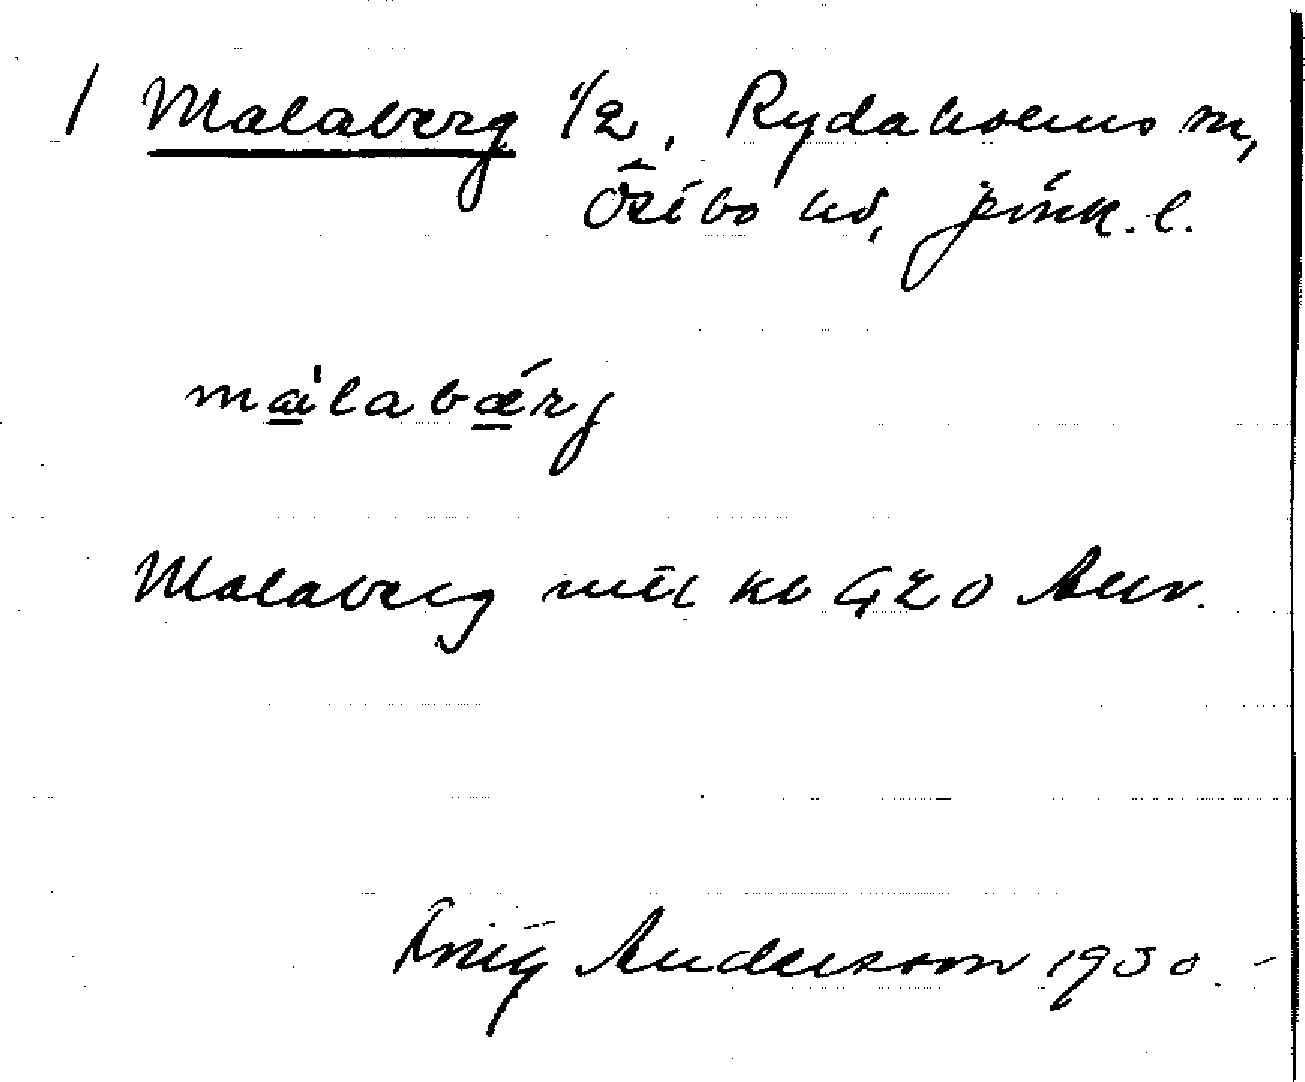 / Malaberg 1/2, Rydaholms sn,
Östbo hd, Jönk. l.
màlabǽrj
Malaberg mtl kb 420 Allv.
Andersson 1930.